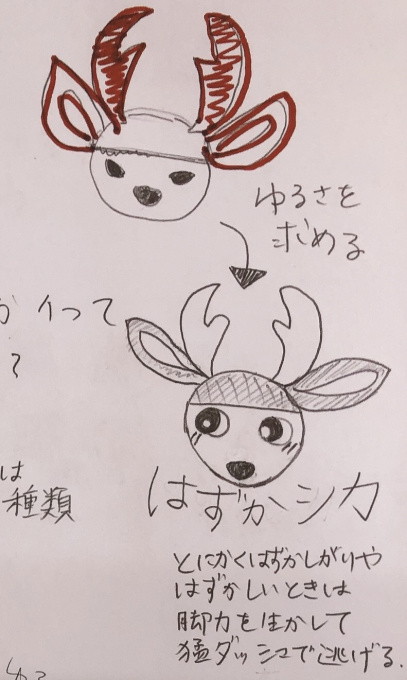 ゆるさを
求める
イって
?
は
種類
はずかシカ
とにかくはずかしがりや
はずかしいときは
脚力を生かして
猛ダッシュで逃げる.